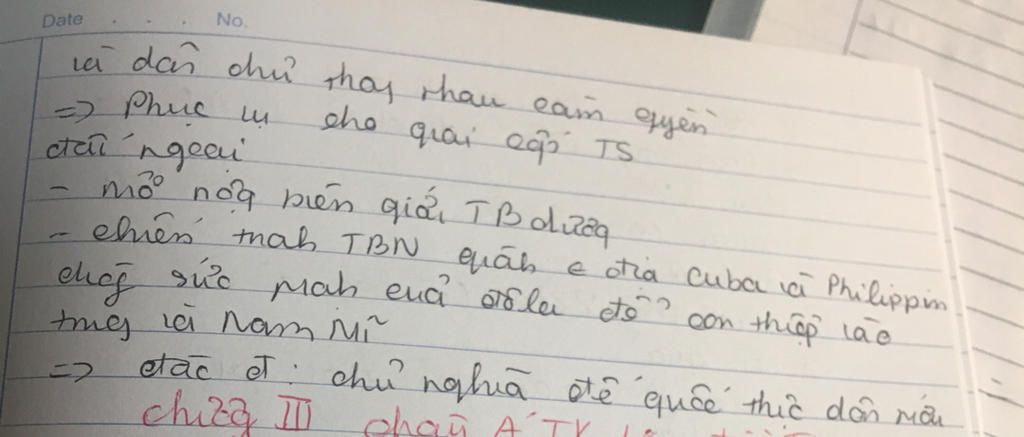 Date . . . No.
và dân chủ thay nhau cầm quyền
=> Phục vụ cho giai cấp TS
đối ngoại
- mở rộng biên giới TBdương
- chiến tranh TBN thuộc địa Cuba và Philippin
dùng sức mạnh của đôla để can thiệp vào
trung và Nam Mĩ
=> đặc đ : chủ nghĩa đế quốc thực dân mới
chương III châu Á TK